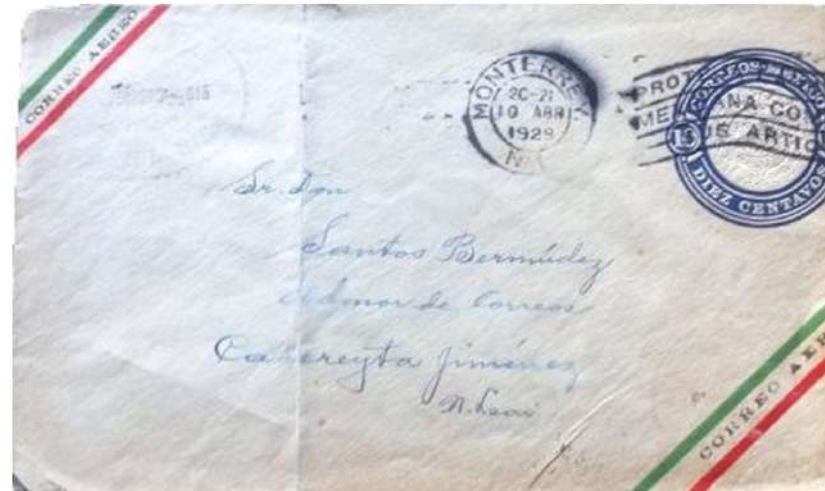 CORREO AEREO
MONTERREY
20-21
10 ABR
1929
N.L.
PROT
MEXICANA CO
SUS ARTIC
CORREOS MEXICO
10
DIEZ CENTAVOS
Sr. Don
Santos Bermúdez
Admor de Correos
Cadereyta Jiménez
N. León
CORREO AEREO